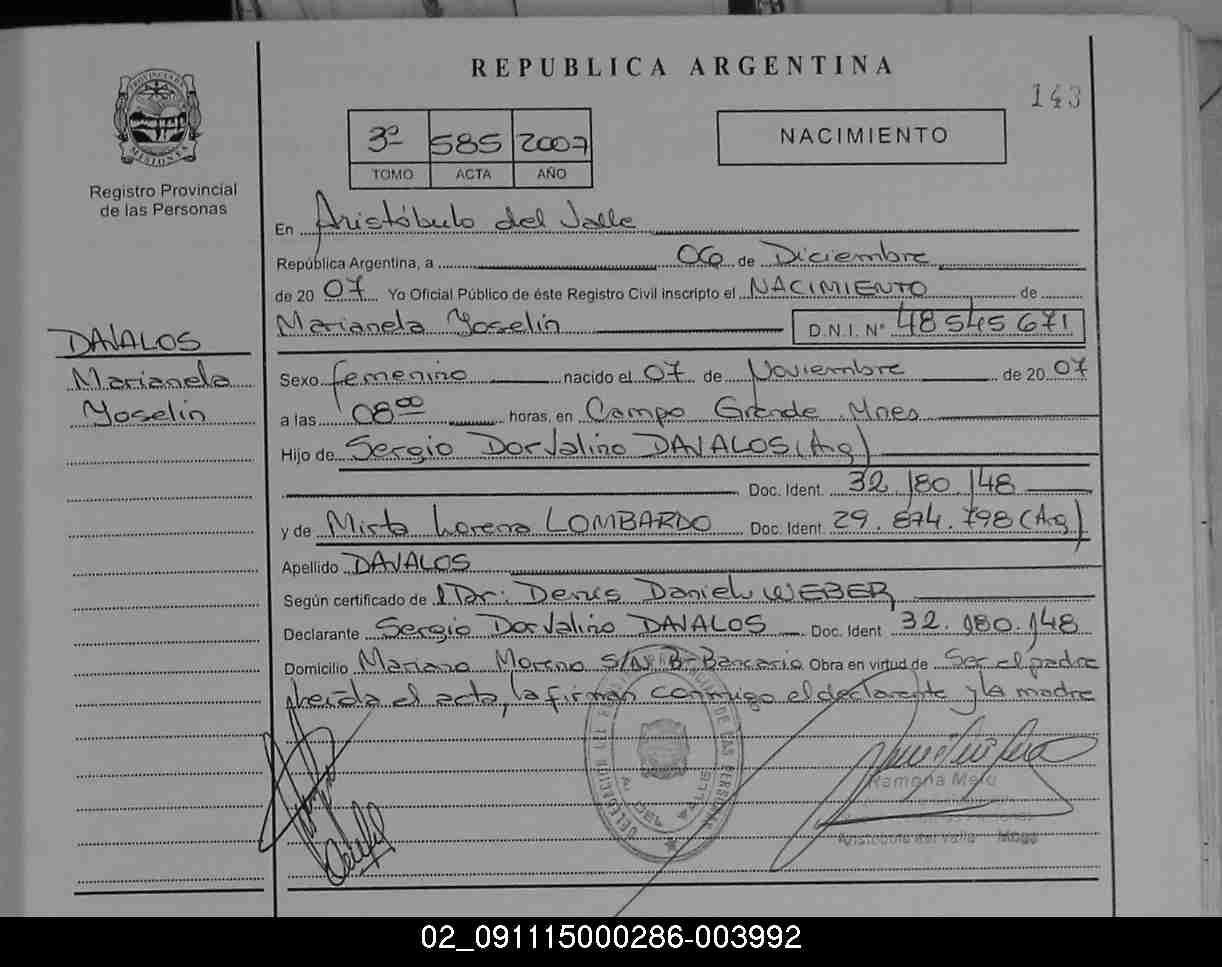 REPUBLICA ARGENTINA
143
PROVINCIA DE
MISIONES
Registro Provincial
de las Personas
3º 585 2007
TOMO ACTA AÑO
NACIMIENTO
En Aristóbulo del Valle
República Argentina, a 06 de Diciembre
de 2007 Yo Oficial Público de éste Registro Civil inscripto el NACIMIENTO de
Marianela Yoselin D.N.I. Nº 48545671
DAVALOS
Marianela
Yoselin
Sexo femenino nacido el 07 de Noviembre de 2007
a las 08⁰⁰ horas, en Campo Grande Mnes
Hijo de Sergio Dorvalino DAVALOS (Arg)
Doc. Ident. 32.180.148
y de Mirta Lorena LOMBARDO Doc. Ident. 29.874.798 (Arg)
Apellido DAVALOS
Según certificado de Dr: Denis Daniel WEBER
Declarante Sergio Dorvalino DAVALOS Doc. Ident 32.180.148
Domicilio Mariano Moreno S/Nº Bº Bancario Obra en virtud de Ser el padre
leída el acta, la firman conmigo el declarante y la madre
DE LAS PERSONAS
A. DEL VALLE
Ramona Melo
Aristóbulo del Valle Mnes
02_091115000286-003992